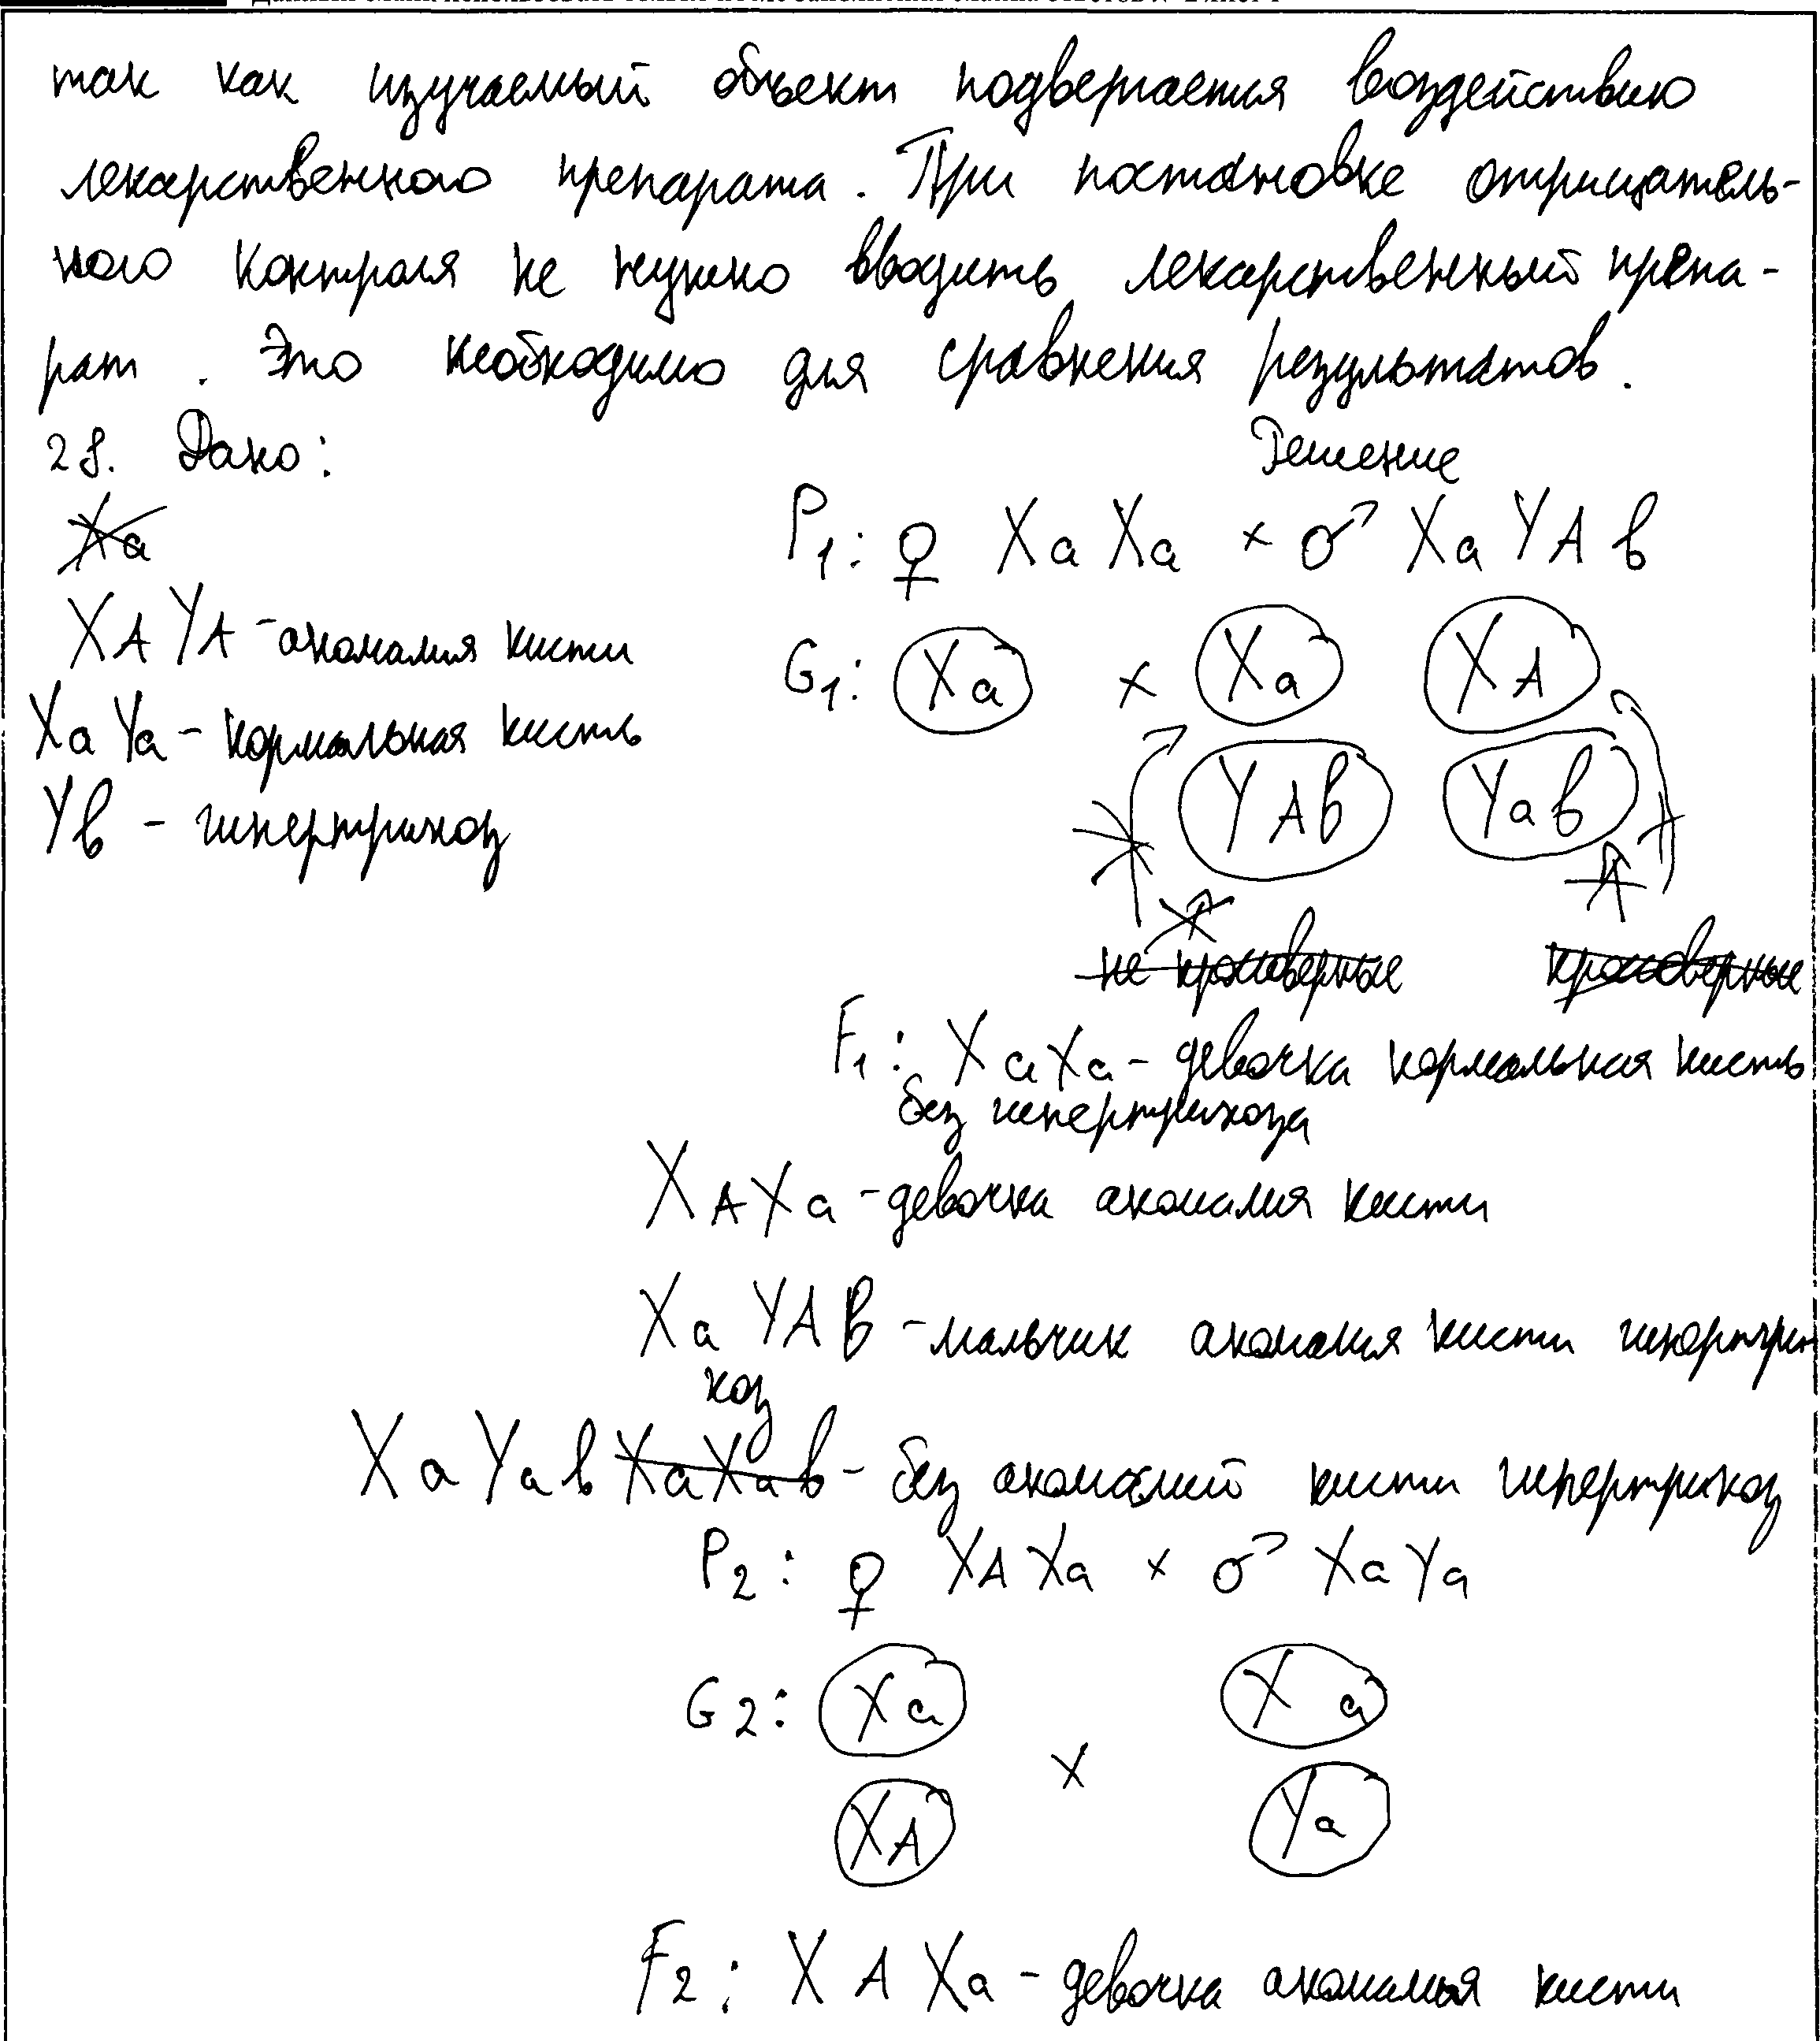 так как изучаемый объект подвергается воздействию
лекарственного препарата. При постановке отрицатель-
ного контроля не нужно вводить лекарственный препа-
рат. Это необходимо для сравнения результатов.
28. Дано:
Решение
Xa
P1: ♀ Xa Xa × ♂ Xa YA в
XA YA - аномалия кисти
G1: Xa × Xa XA
Xa Ya - нормальная кисть
YAв Yaв
Yв - гипертрихоз
не кроссверные кроссоверные
F1: Xa Xa - девочка нормальная кисть
без гипертрихоза
XA Xa - девочка аномалия кисти
Xa YA в - мальчик аномалия кисти гипертри
хоз
Xa Ya в Xa Xa в - без аномалий кисти гипертрихоз
P2: ♀ XA Xa × ♂ Xa Ya
G2: Xa Xa
×
XA Ya
F2: XA Xa - девочка аномалья кисти